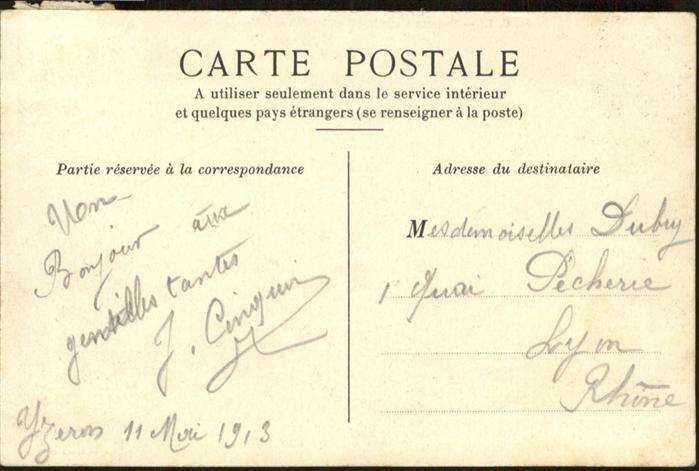 CARTE POSTALE
A utiliser seulement dans le service intérieur
et quelques pays étrangers (se renseigner à la poste)
Partie réservée à la correspondance
Bonjour aux
gentilles tantes
J. Cinquin
Yzeron 11 Mai 1913
Adresse du destinataire
Mesdemoiselles Dubuy
1 Quai Pècherie
Lyon
Rhône